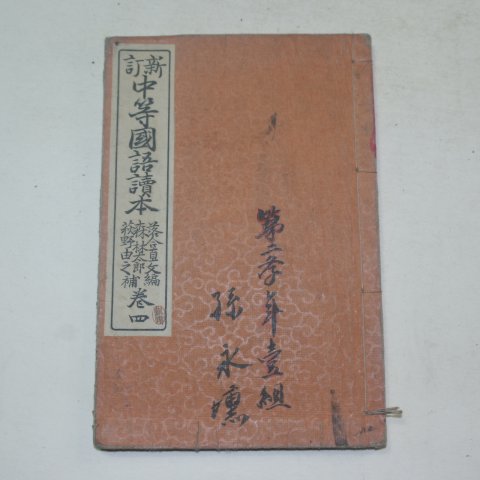 新訂
中等國語讀本
落合直文編
森林太郎
萩野由之補
卷四
第二學年壹組
孫永